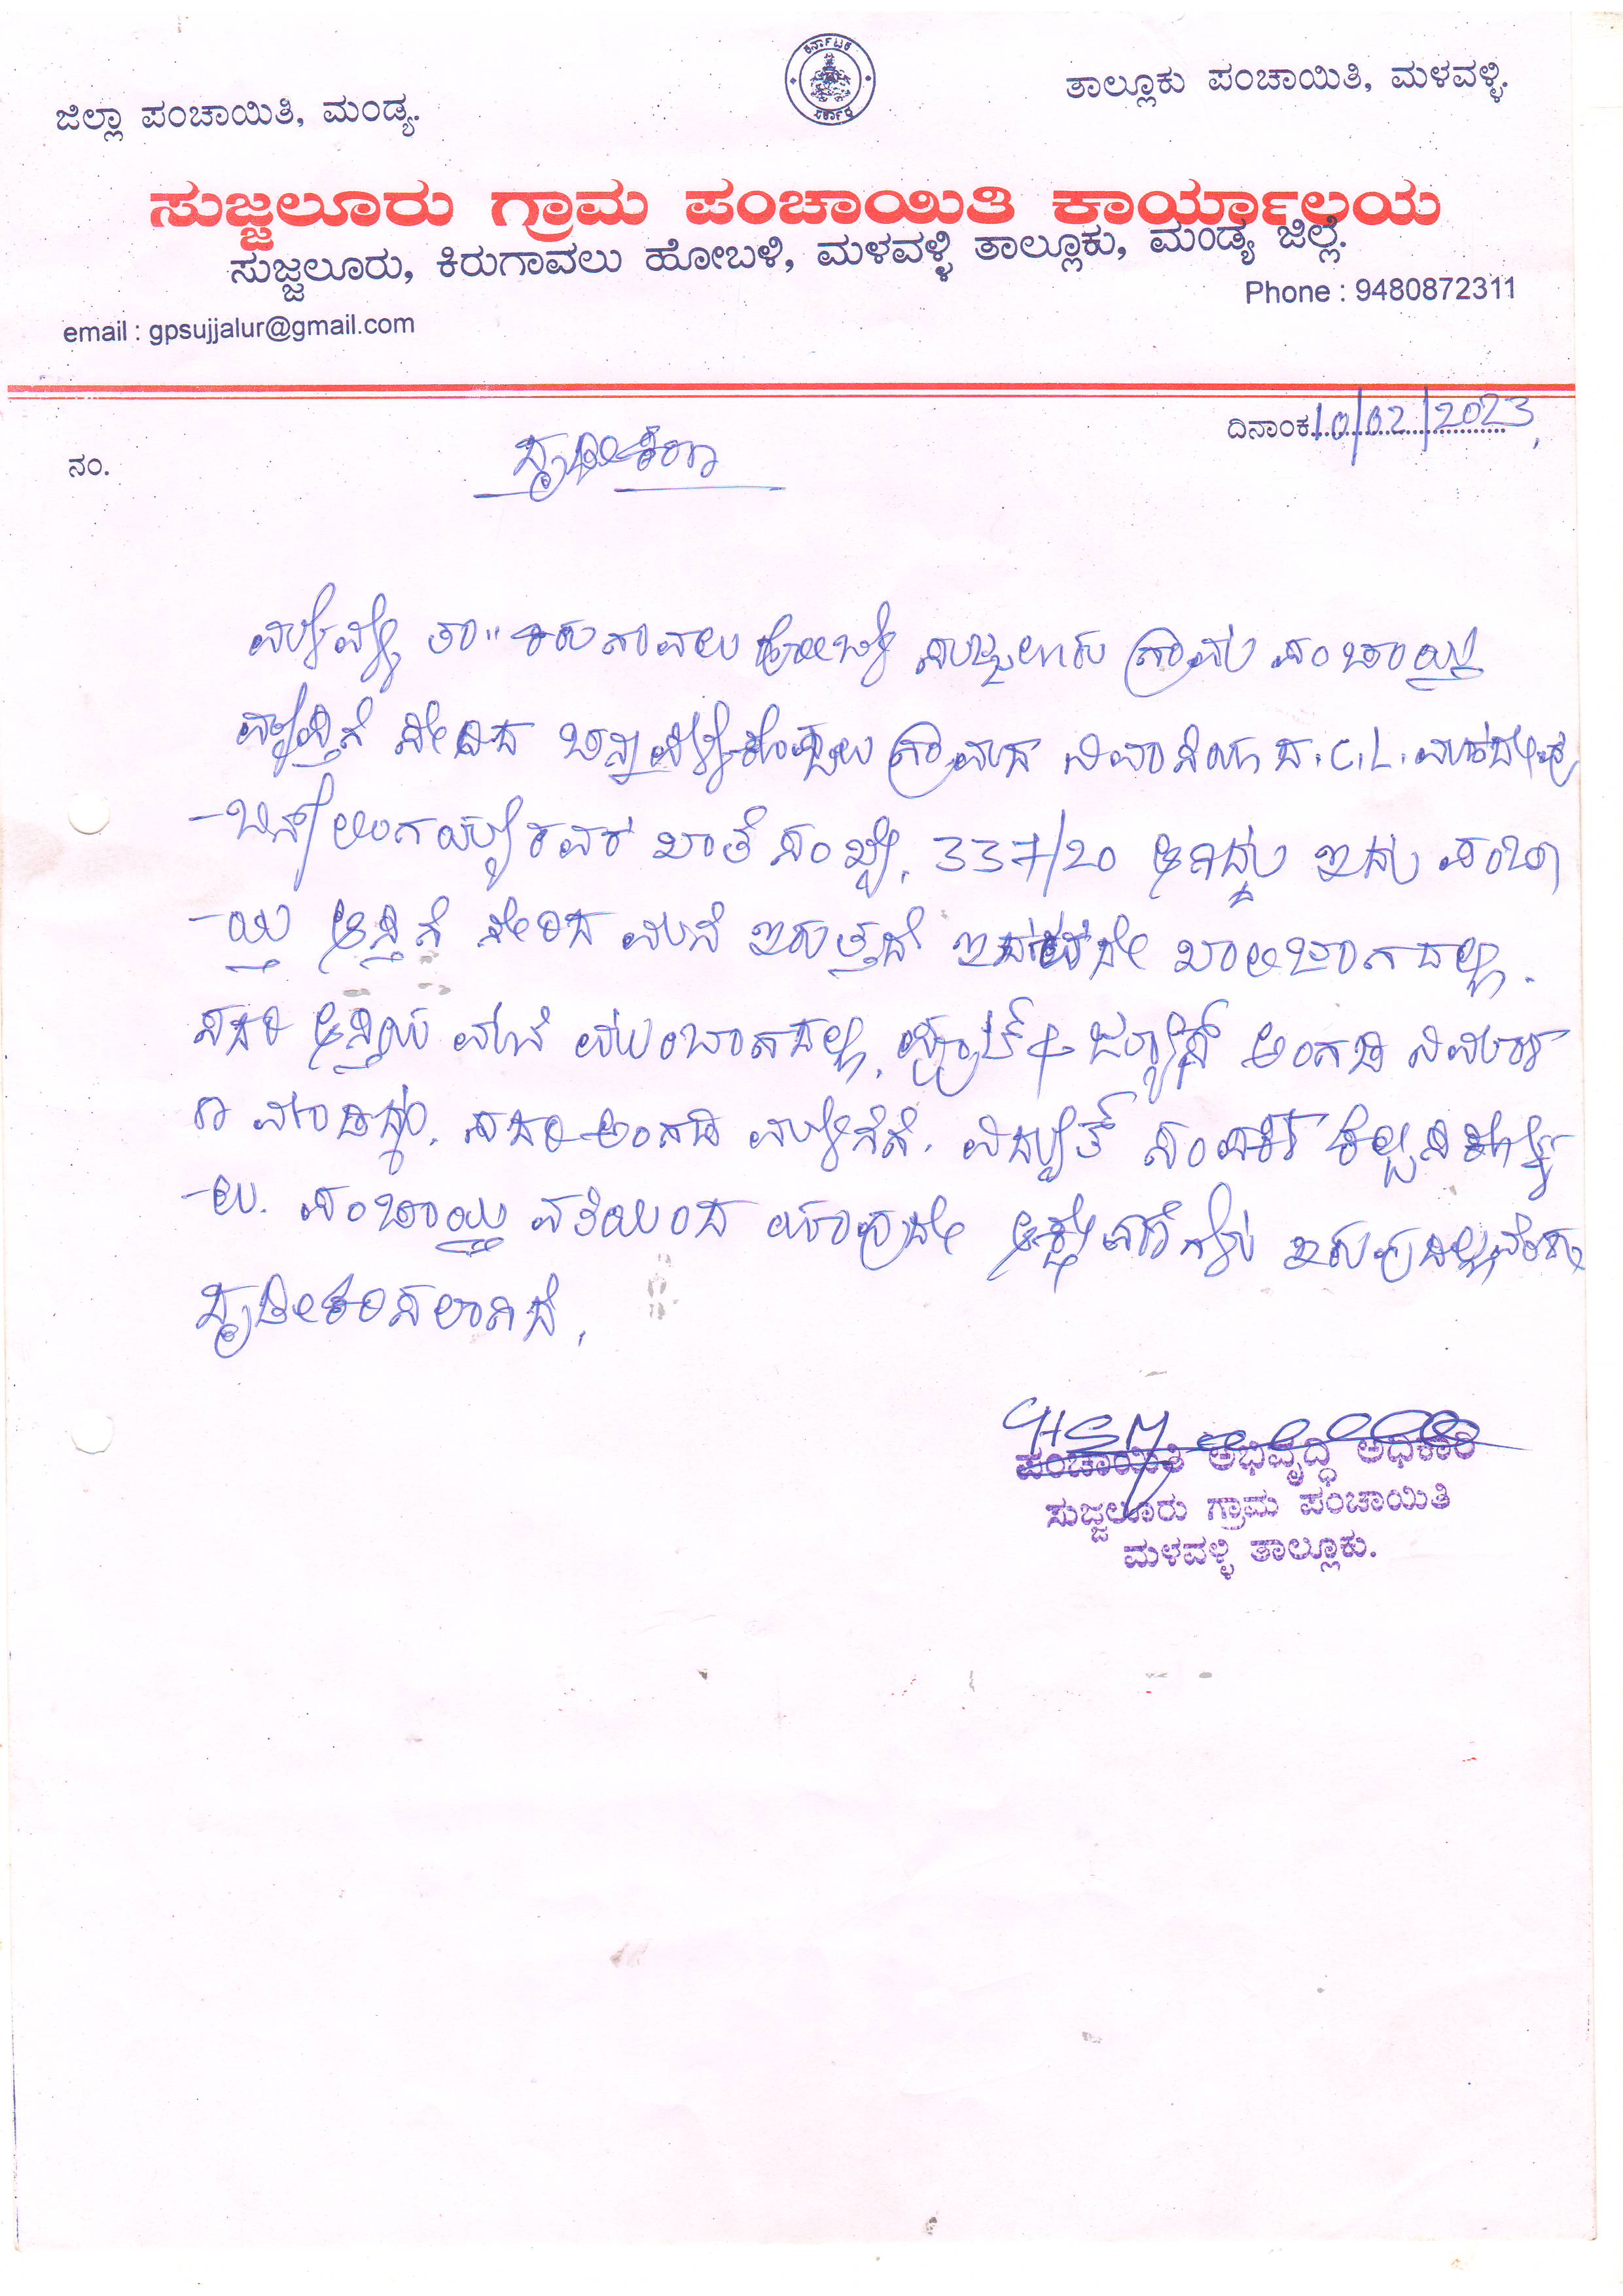 ಕರ್ನಾಟಕ
ಸರ್ಕಾರ
ಜಿಲ್ಲಾ ಪಂಚಾಯಿತಿ, ಮಂಡ್ಯ.
ತಾಲ್ಲೂಕು ಪಂಚಾಯಿತಿ, ಮಳವಳ್ಳಿ.
ಸುಜ್ಜಲೂರು ಗ್ರಾಮ ಪಂಚಾಯಿತಿ ಕಾರ್ಯಾಲಯ
ಸುಜ್ಜಲೂರು, ಕಿರುಗಾವಲು ಹೋಬಳಿ, ಮಳವಳ್ಳಿ ತಾಲ್ಲೂಕು, ಮಂಡ್ಯ ಜಿಲ್ಲೆ.
Phone : 9480872311
email : gpsujjalur@gmail.com
ದಿನಾಂಕ 10/02/2023
ನಂ.
ದೃಢೀಕರಣ
ಮಳವಳ್ಳಿ ತಾ" ಕಿರುಗಾವಲು ಹೋಬಳಿ ಸುಜ್ಜಲೂರು ಗ್ರಾಮ ಪಂಚಾಯ್ತಿ
ವ್ಯಾಪ್ತಿಗೆ ಸೇರಿದ ಗ್ರಾಮದ ನಿವಾಸಿಯಾದ. C.L.
-ಬಿನ್ ಲಿಂಗಯ್ಯ ರವರ ಖಾತೆ ಸಂಖ್ಯೆ, 337/20 ಆಗಿದ್ದು ಇದು ಪಂಚಾ
-ಯ್ತಿ ಆಸ್ತಿಗೆ ಸೇರಿದ ಮನೆ ಇರುತ್ತದೆ ಖಾಲಿಜಾಗದಲ್ಲಿ.
ಸದರಿ ಆಸ್ತಿಯ ಮನೆ ಮುಂಭಾಗದಲ್ಲಿ, ಅಂಗಡಿ ನಿರ್ಮಾ
ಣ ಮಾಡಿದ್ದು. ಸದರಿ ಅಂಗಡಿ ಮಳಿಗೆಗೆ. ವಿದ್ಯುತ್ ಸಂಪರ್ಕ ಕಲ್ಪಿಸಿಕೊಳ್ಳ
-ಲು. ಪಂಚಾಯ್ತಿ ವತಿಯಿಂದ ಯಾವುದೇ ಆಕ್ಷೇಪಣೆಗಳು ಇರುವುದಿಲ್ಲವೆಂದು
ದೃಢೀಕರಿಸಲಾಗಿದೆ,
ಪಂಚಾಯಿತಿ ಅಭಿವೃದ್ಧಿ ಅಧಿಕಾರಿ
ಸುಜ್ಜಲೂರು ಗ್ರಾಮ ಪಂಚಾಯಿತಿ
ಮಳವಳ್ಳಿ ತಾಲ್ಲೂಕು.